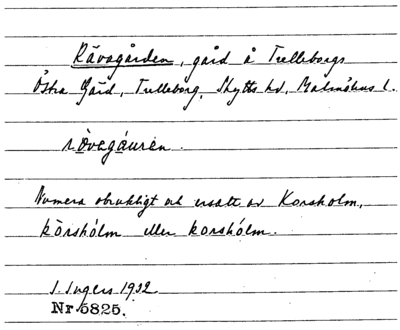 Rävagården, gård å Trelleborgs
Östra Gärd, Trelleborg, Skytts hd, Malmöhus l.
rövegáuren.
Numera obrukligt och ersatt av Korsholm,
kòrshólm eller korshólm.
I. Ingers 1932
Nr 5825.